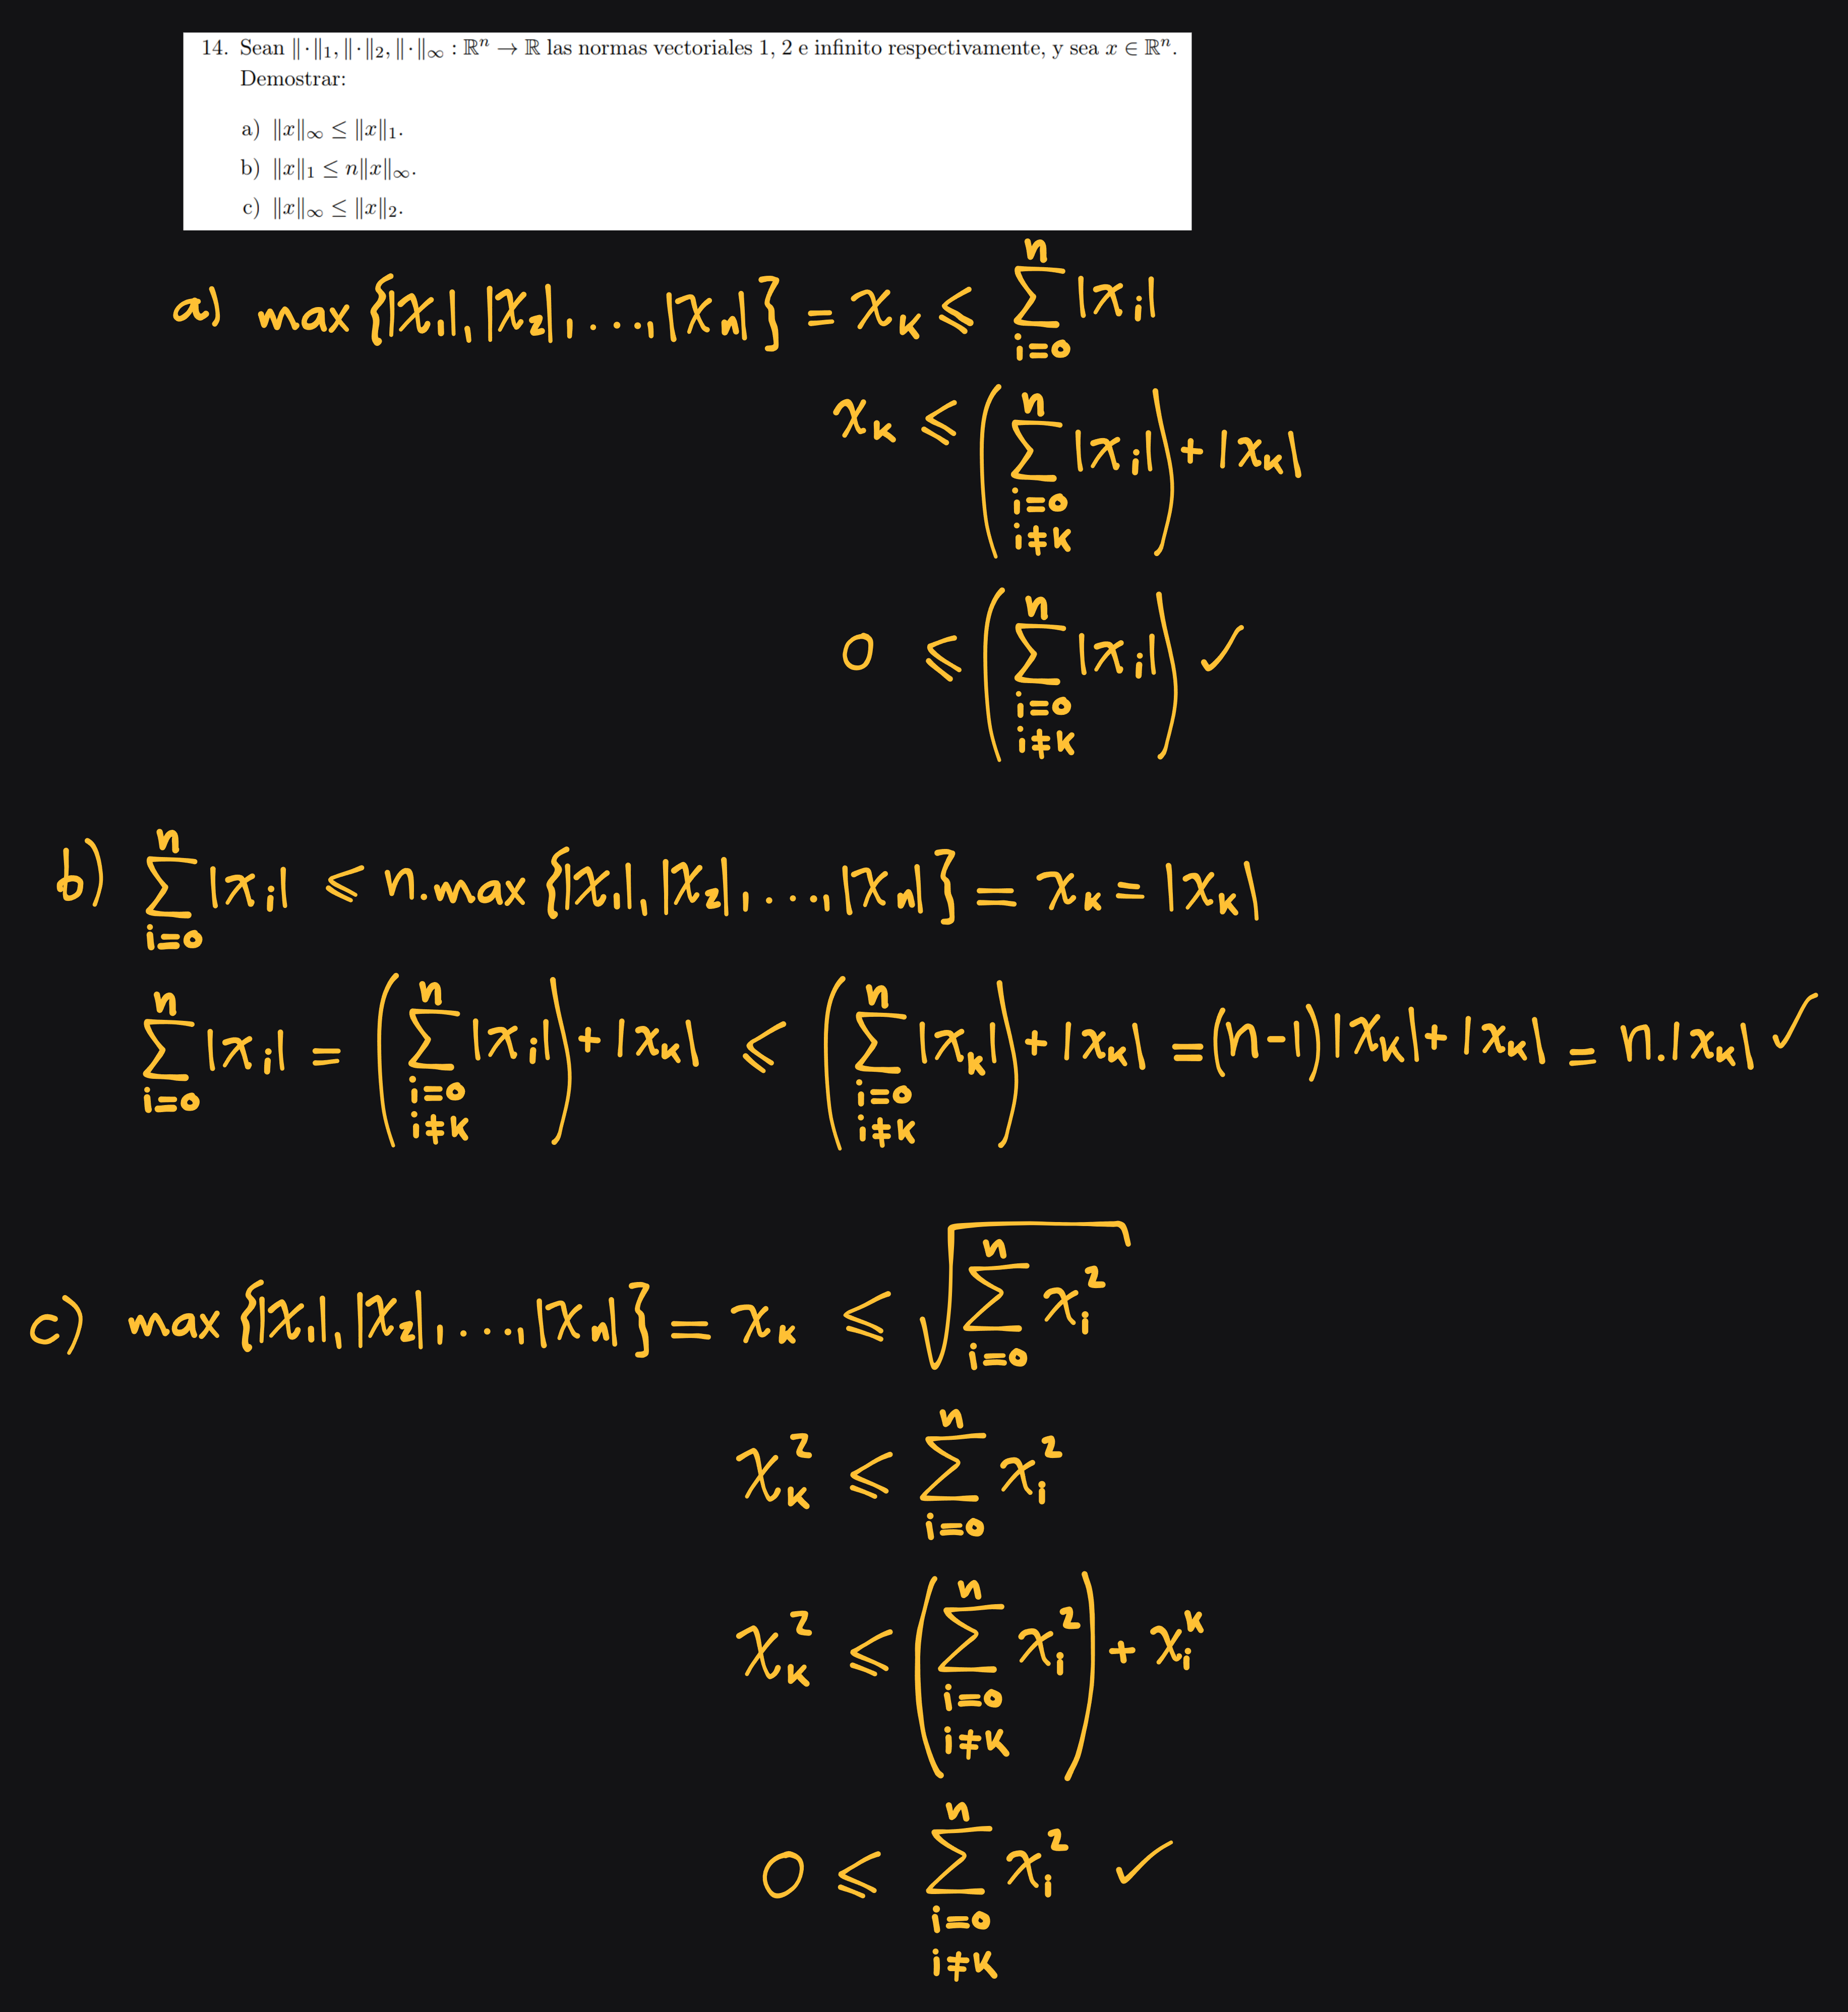 14. Sean ‖·‖₁, ‖·‖₂, ‖·‖∞ : ℝⁿ → ℝ las normas vectoriales 1, 2 e infinito respectivamente, y sea x ∈ ℝⁿ.
Demostrar:
a) ‖x‖∞ ≤ ‖x‖₁.
b) ‖x‖₁ ≤ n‖x‖∞.
c) ‖x‖∞ ≤ ‖x‖₂.
a) max {|x₁|, |x₂|, ..., |xₙ|} = x_k ≤ ∑_{i=0}^{n} |x_i|
x_k ≤ (∑_{i=0, i≠k}^{n} |x_i|) + |x_k|
0 ≤ (∑_{i=0, i≠k}^{n} |x_i|) ✓
b) ∑_{i=0}^{n} |x_i| ≤ n.max {|x₁|, |x₂|, ..., |xₙ|} = x_k = |x_k|
∑_{i=0}^{n} |x_i| = (∑_{i=0, i≠k}^{n} |x_i|) + |x_k| ≤ (∑_{i=0, i≠k}^{n} |x_k|) + |x_k| = (n-1)|x_k| + |x_k| = n.|x_k| ✓
c) max {|x₁|, |x₂|, ..., |xₙ|} = x_k ≤ √(∑_{i=0}^{n} x_i^2)
x_k^2 ≤ ∑_{i=0}^{n} x_i^2
x_k^2 ≤ (∑_{i=0, i≠k}^{n} x_i^2) + x_i^k
0 ≤ ∑_{i=0, i≠k}^{n} x_i^2 ✓